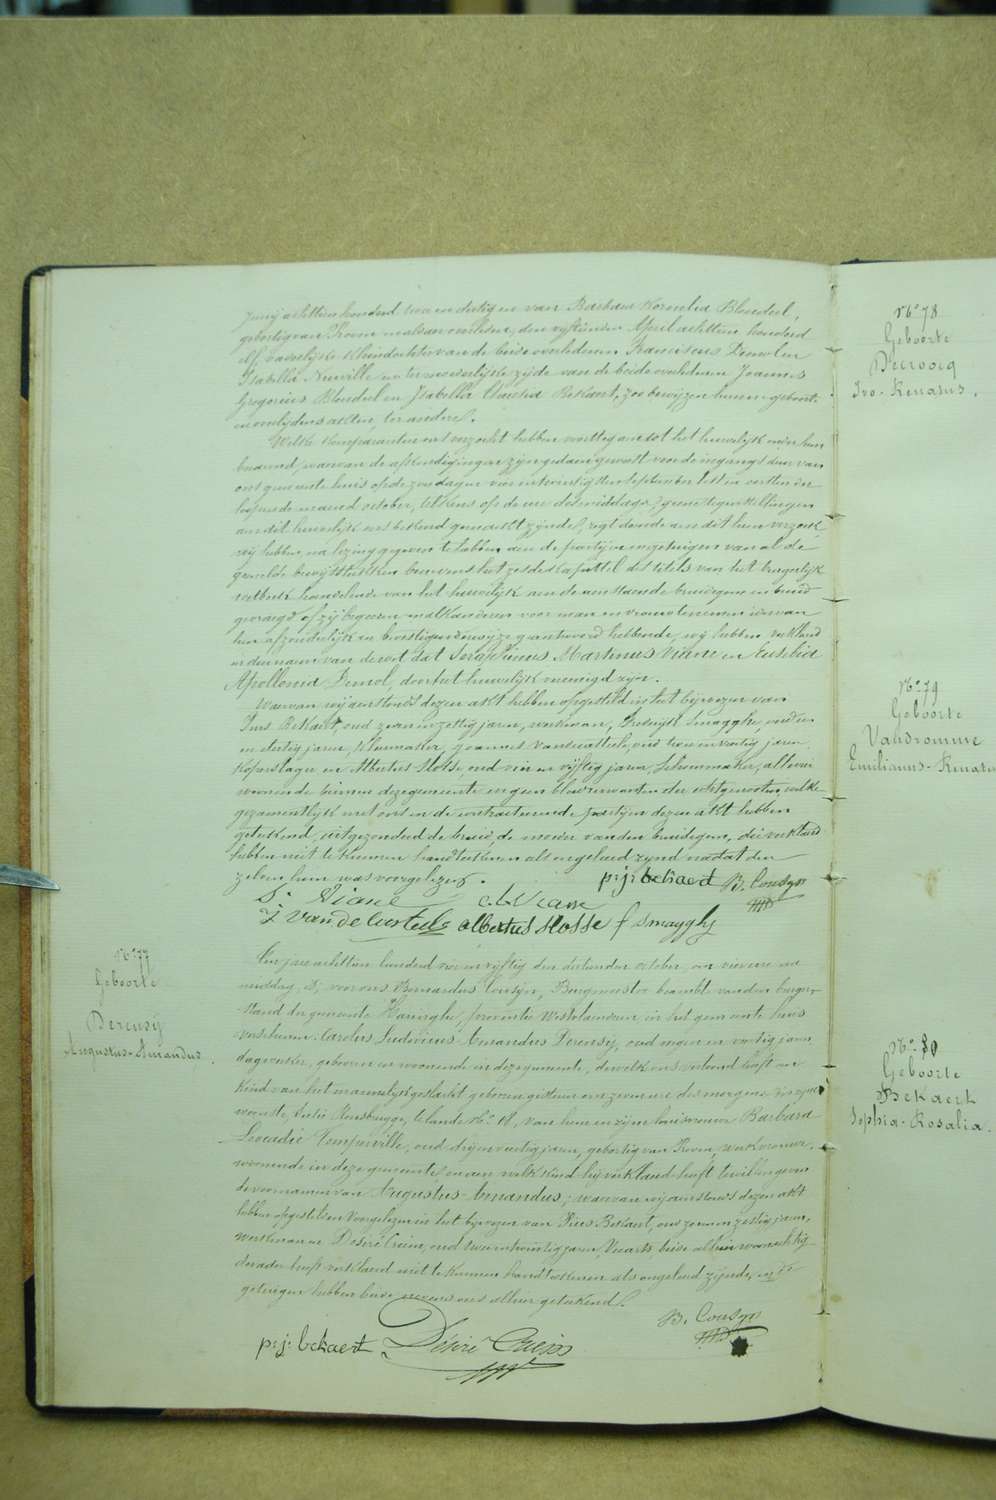 Junij achttien honderd twee en dertig en van Barbara Kornelia Blondeel,
geboortig van Proven maldaar overleden, den vijftienden April achttien honderd
elf, vaderlijke kleindochter van de beide overledenen Franciscus Demol en
Isabella Neuville en ter moederlijke zijde van de beide overledenen Joannes
Gregorius Blondeel en Isabella Claudia Bekaert, zoo bewijzen hunne geboorte
en overlijdens akten, ter andere.
Welke komparanten ons verzocht hebben voorttegaan tot het huwelijk onder hun
beraemd, waarvan de afkondigingen zijn gedaen geweest voor de ingangs deur van
ons gemeente huis op de zondagen vier en twintigsten september lest en eersten der
loopende maand october, telkens op de ure des middags. Geene tegenstellingen
aan dit huwelijk ons bekend gemaakt zijnde, regt doende aan dit hun verzoek,
wij hebben, na lezing gegeven te hebben aen de partijen en getuigen van al de
gemelde bewijsstukken benevens het zesde kapittel des titels van het burgerlijk
wetboek handelende van het huwelijk aen de aenstaende bruidegom en bruid
gevraegd of zij begeeren malkanderen voor man en vrouw te nemen ieder van
hun afzonderlijk en bevestigender wijze geantwoord hebbende, wij hebben verklaerd
in den naem van de wet dat Seraphinus Martinus Viane en Eusebia
Apollonia Demol, door het huwelijk vereenigd zijn.
Waervan wij aenstonds dezen akt hebben opgesteld in het bijwezen van
Pius Bekaert, oud zeven en zestig jaren, werkman, Frederijk Smagghe, oud een
en dertig jaren, kleermaker, Joannes Vandecasteele, oud twee en veertig jaren
koperslager en Albertus Hosse, oud vier en vijftig jaren, schoenmaker, alle vier
woonende binnen deze gemeente en geen bloedverwanten der echtgenooten, welke
gezamentlijk met ons en de contracteerende partijen dezen akt hebben
geteekend, uitgezonderd de bruid, de moeder van den bruidegom, die verklaerd
hebben niet te kunnen handteekenen als ongeleerd zijnde nadat den
zelven hun was voorgelezen.
p:j: bekaert B. Cousyn
S. Viane
J Van de Casteele albertus Hosse f smagghe
No 77
Geboorte
Dereusÿ
Augustus-Amandus.
Ten jare achttien honderd vier en vijftig den derden october, om vier ure na
middag, voor ons Bernardus Cousyn, Burgmeester beambte van den burger-
stand der gemeente Haringhe, provintie Westvlaenderen in het gemeente huis
verschenen Carolus Ludovicus Amandus Dereusÿ, oud negen en veertig jaren
dagwerker, geboren en woonende in deze gemeente, dewelk ons vertoond heeft een
kind van het mannelijk geslacht geboren gisteren om zeven ure des morgens in zijne
woonste, sectie Rousbrugge, te lande No 18, van hem en zijne huisvrouw Barbara
Leocadie Temperville, oud drij en veertig jaren, geboortig van Proven, werkvrouw,
woonende in deze gemeente, en aen welk kind hij verklaerd heeft te willen geven
de voornamen van Augustus Amandus; waervan wij aenstonds dezen akt
hebben opgesteld en voorgelezen in het bijwezen van Pius Bekaert, oud zeven en zestig jaren,
werkman en Désiré Crein, oud twee en twintig jaren, beide alhier woonachtig
de vader heeft verklaerd niet te kunnen handteekenen als ongeleerd zijnde, en de
getuigen hebben beide nevens ons alhier geteekend.
B. Cousyn
p:j: bekaert Désiré Crein
No 78
Geboorte
Decroocq
Ivo-Renatus.
No 79
Geboorte
Vandromme
Emilianus-Renatus
No 80
Geboorte
Bekaert
Sophia-Rosalia.